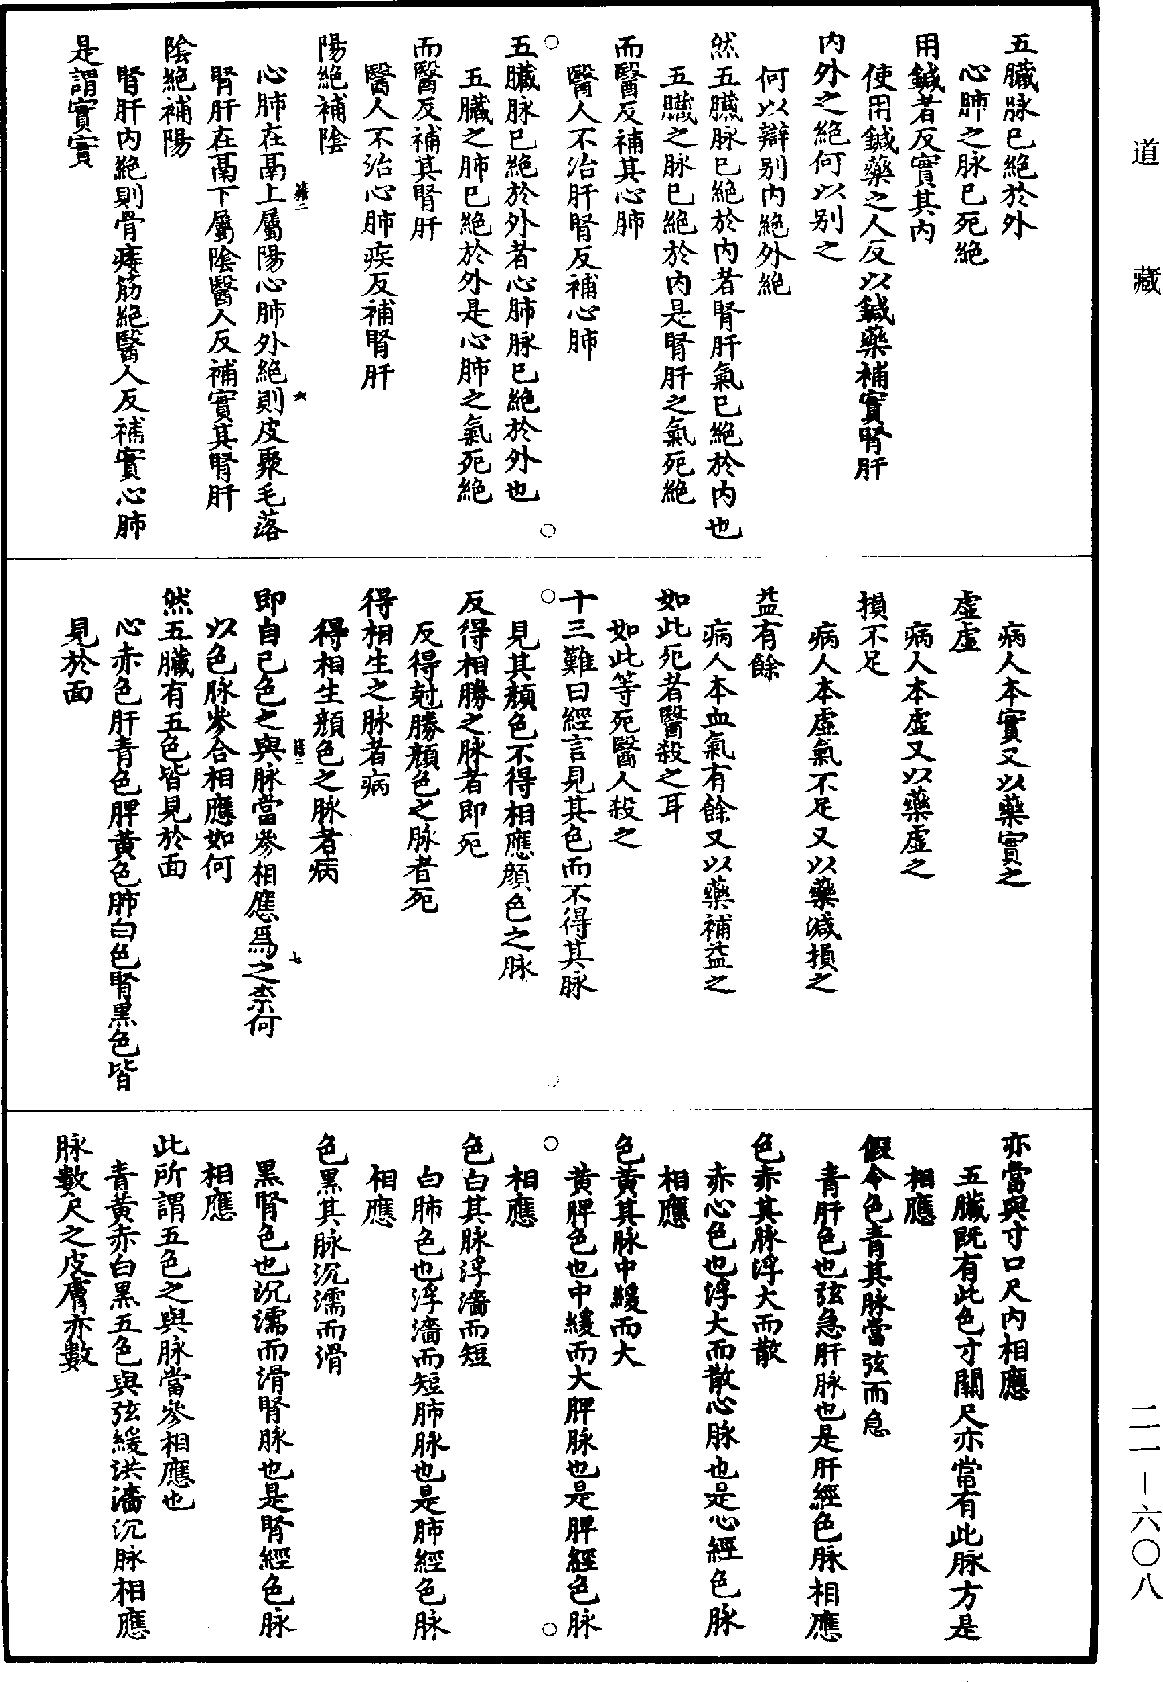 道藏
五臟脉已絕於外
心肺之脉已死絕
用鍼者反實其內
使用鍼藥之人反以鍼藥補實腎肝
內外之絕何以別之
何以辯别內絕外絕
然五臟脉已絕於內者腎肝氣已絕於內也
五臟之脉已絕於內是腎肝之氣死絕
而醫反補其心肺
醫人不治肝腎反補心肺
五臟脉已絕於外者心肺脉已絕於外也
五臟之肺已絕於外是心肺之氣死絕
而醫反補其腎肝
醫人不治心肺疾反補腎肝
陽絕補陰
心肺在鬲上屬陽心肺外絕則皮聚毛落
腎肝在鬲下屬陰醫人反補實其腎肝
陰絕補陽
腎肝內絕則骨痿筋絕醫人反補實心肺
是謂實實
病人本實又以藥實之
虛虛
病人本虛又以藥虛之
損不足
病人本虛氣不足又以藥減損之
益有餘
病人本血氣有餘又以藥補益之
如此死者醫殺之耳
如此等死醫人殺之
十三難曰經言見其色而不得其脉
見其顏色不得相應顏色之脉
反得相勝之脉者即死
反得尅勝顏色之脉者死
得相生之脉者病
得相生顏色之脉者病
即自己色之與脉當參相應爲之柰何
以色脉參合相應如何
然五臟有五色皆見於面
心赤色肝青色脾黃色肺白色腎黑色皆
見於面
亦當與寸口尺內相應
五臟既有此色寸關尺亦當有此脉方是
相應
假令色青其脉當弦而急
青肝色也弦急肝脉也是肝經色脉相應
色赤其脉浮大而散
赤心色也浮大而散心脉也是心經色脉
相應
色黃其脉中緩而大
黃脾色也中緩而大脾脉也是脾經色脉
相應
色白其脉浮濇而短
白肺色也浮濇而短肺脉也是肺經色脉
相應
色黑其脉沉濡而滑
黑腎色也沉濡而滑腎脉也是腎經色脉
相應
此所謂五色之與脉當參相應也
青黃赤白黑五色與弦緩洪濇沉脉相應
脉數尺之皮膚亦數
二一—六〇八